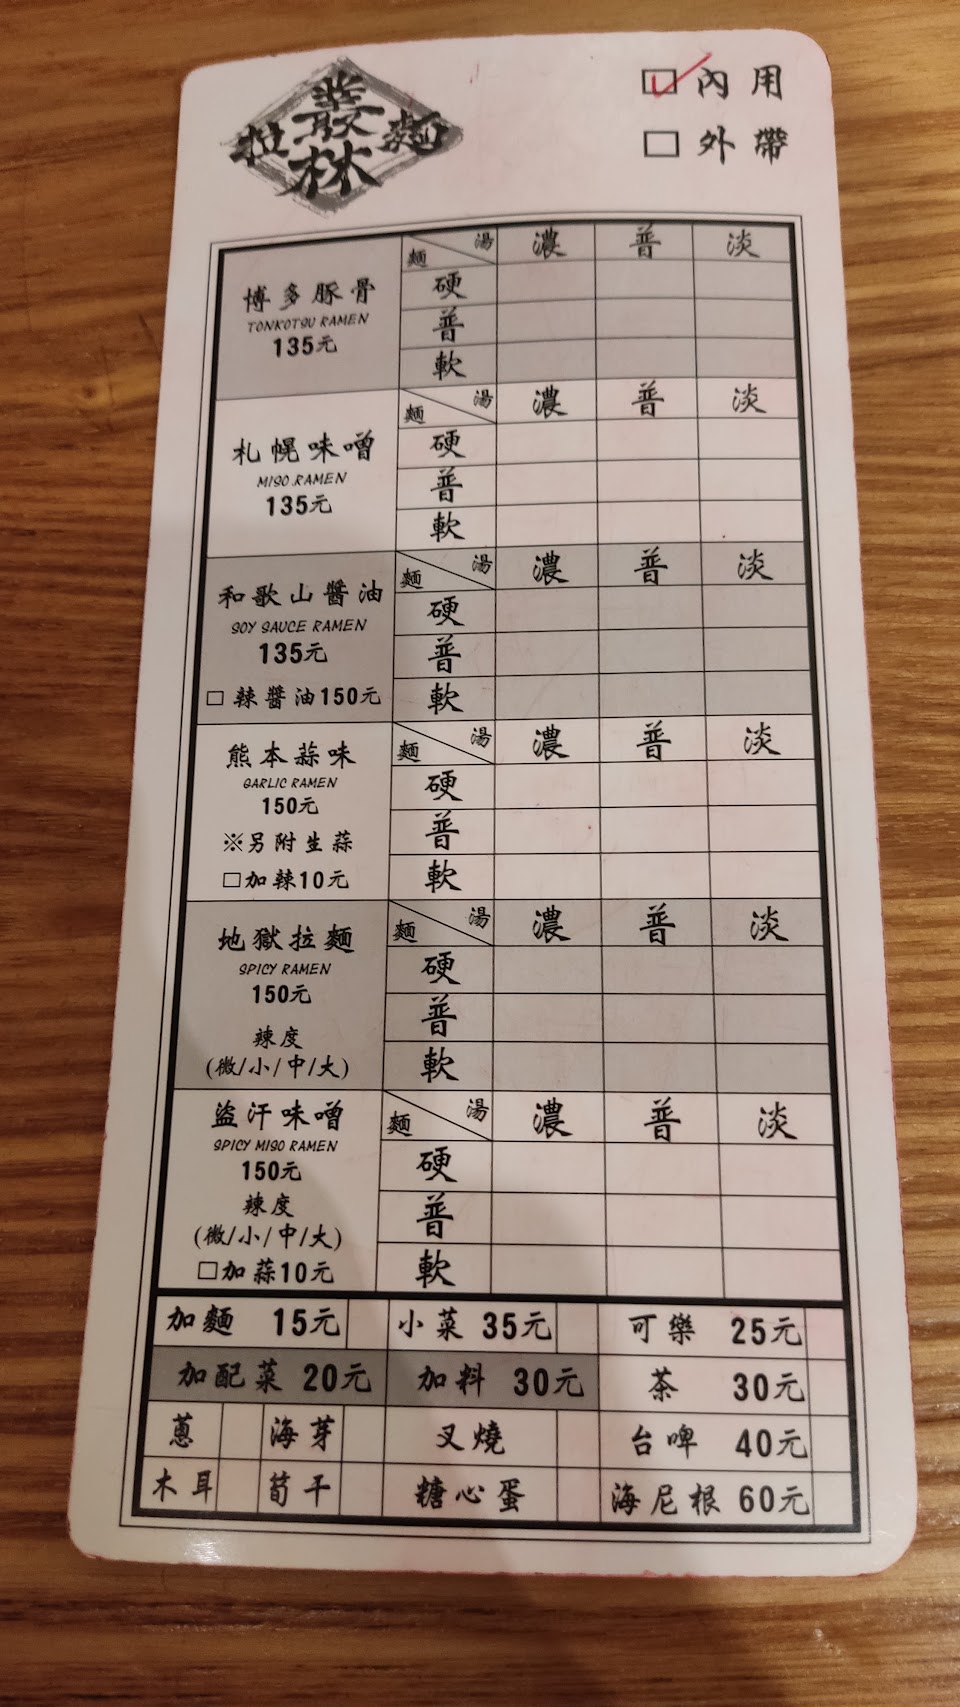 叢林
拉麵
內用
外帶
博多豚骨
TONKOTSU RAMEN
135元
麵 湯 濃 普 淡
硬
普
軟
札幌味噌
MISO RAMEN
135元
麵 湯 濃 普 淡
硬
普
軟
和歌山醬油
SOY SAUCE RAMEN
135元
□ 辣醬油150元
麵 湯 濃 普 淡
硬
普
軟
熊本蒜味
GARLIC RAMEN
150元
※另附生蒜
□加辣10元
麵 湯 濃 普 淡
硬
普
軟
地獄拉麵
SPICY RAMEN
150元
辣度
(微/小/中/大)
麵 湯 濃 普 淡
硬
普
軟
盜汗味噌
SPICY MISO RAMEN
150元
辣度
(微/小/中/大)
□加蒜10元
麵 湯 濃 普 淡
硬
普
軟
加麵 15元 小菜 35元 可樂 25元
加配菜 20元 加料 30元 茶 30元
蔥 海芽 叉燒 台啤 40元
木耳 筍干 糖心蛋 海尼根 60元